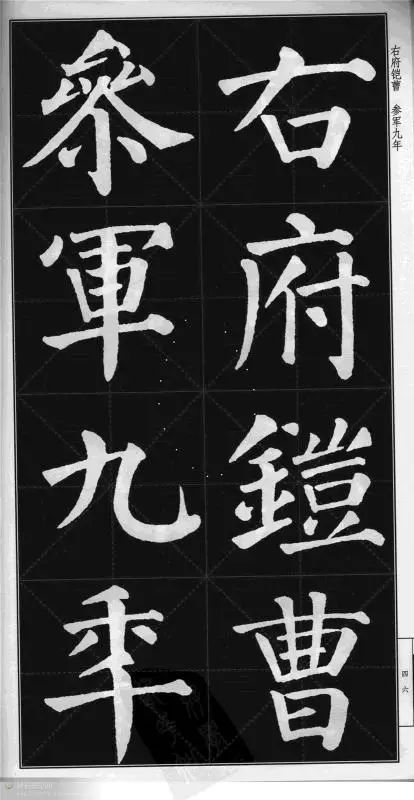 右府鎧曹
參軍九年
右府铠曹 参军九年
四六